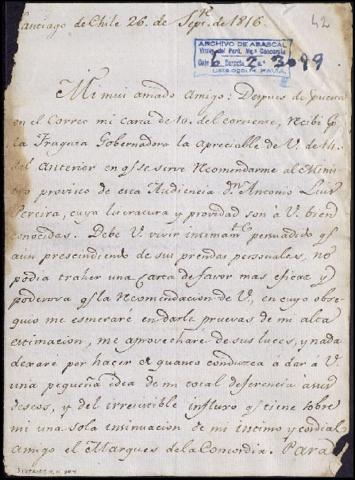 Santiago de Chile 26. de Sepre. de 1816.
42
ARCHIVO DE ABASCAL
Virrey del Perú, Mq. Concordia
6 2º 3º 99
Mi mui amado Amigo: Despues de puesta
en el Correo mi carta de 10. del corriente, recibi pr.
la Fragata Gobernadora la apreciable de V. de 14.
del anterior en qe. se sirve recomendarme al Minis
tro provisto de esta Audiencia Dn. Antonio Luis
Pereira, cuya literatura y providad son à V. bien
conocidas. Debe V. vivir intimamte. persuadido qe.
aun prescindiendo de sus prendas personales, no
podia traher una carta de favor mas eficaz y
poderosa qe. la recomendacion de V, en cuyo obse
quio me esmeraré en darle pruevas de mi alta
estimacion, me aprovecharé de sus luces, y nada
dexaré por hacer de quanto conduzca à dar á V
una pequeña idea de mi total deferencia à sus
deseos, y del irresistible influxo qe. tiene sobre
mi una sola insinuacion de mi intimo y cordial
amigo el Marques de la Concordia. Para